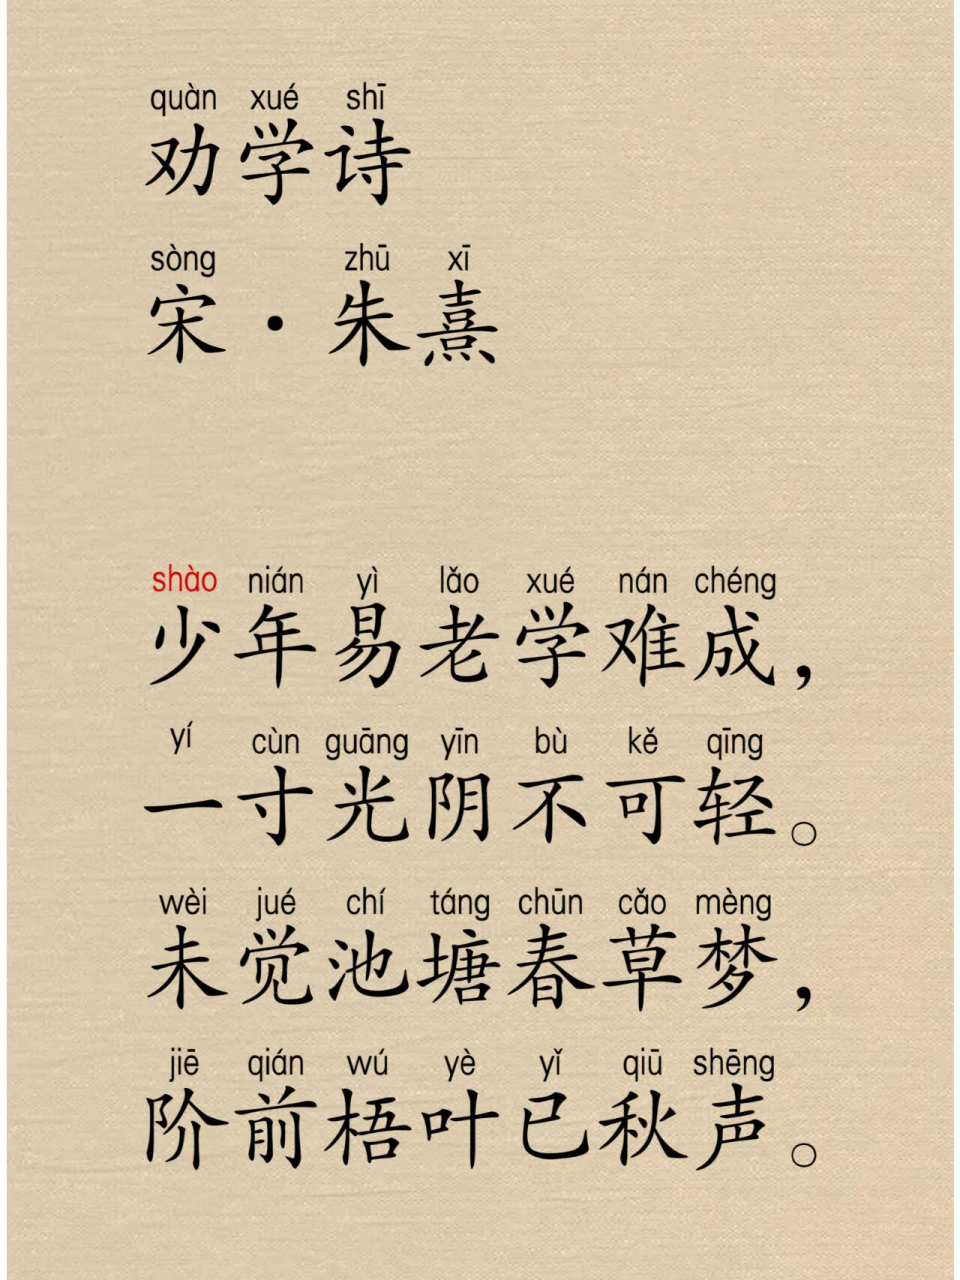 quàn xué shī
劝学诗
sòng zhū xī
宋·朱熹
shào nián yì lǎo xué nán chéng
少年易老学难成，
yí cùn guāng yīn bù kě qīng
一寸光阴不可轻。
wèi jué chí táng chūn cǎo mèng
未觉池塘春草梦，
jiē qián wú yè yǐ qiū shēng
阶前梧叶已秋声。